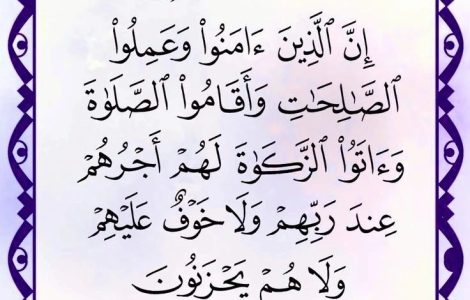 إِنَّ ٱلَّذِينَ ءَامَنُوا۟ وَعَمِلُوا۟
ٱلصَّـٰلِحَـٰتِ وَأَقَامُوا۟ ٱلصَّلَوٰةَ
وَءَاتَوُا۟ ٱلزَّكَوٰةَ لَهُمْ أَجْرُهُمْ
عِندَ رَبِّهِمْ وَلَا خَوْفٌ عَلَيْهِمْ
وَلَا هُمْ يَحْزَنُونَ